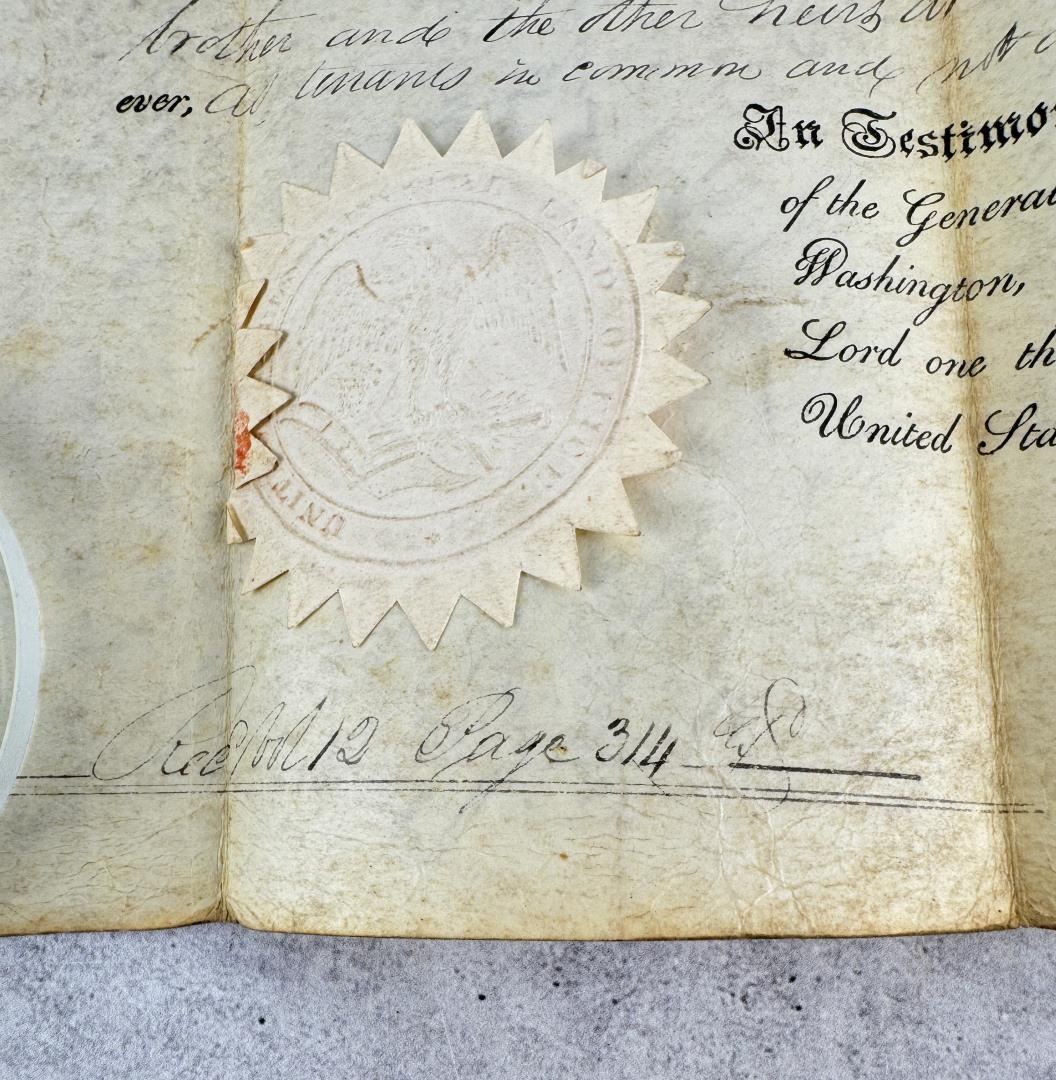 brother and the other heirs
ever, as tenants in common and not
In Testimo
of the General
Washington,
Lord one th
United Sta
LAND OFFICE
UNIT
Rec Vol 12 Page 314